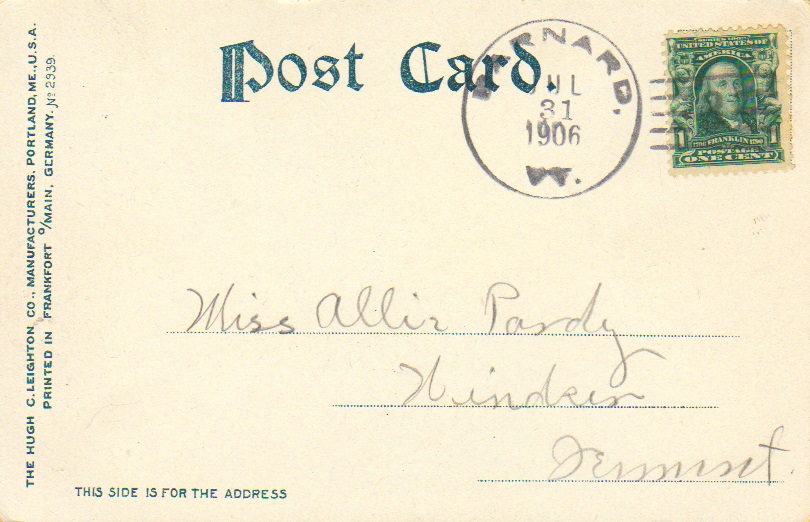 Post Card.
BARNARD,
JUL
31
1906
VT.
SERIES 1902
UNITED STATES OF
AMERICA
1706 FRANKLIN 1790
POSTAGE
1 ONE CENT 1
Miss Allie Pardy
Windsor
Vermont.
THIS SIDE IS FOR THE ADDRESS
THE HUGH C. LEIGHTON, CO., MANUFACTURERS, PORTLAND, ME., U.S.A.
PRINTED IN FRANKFORT O/MAIN, GERMANY. No 2939.